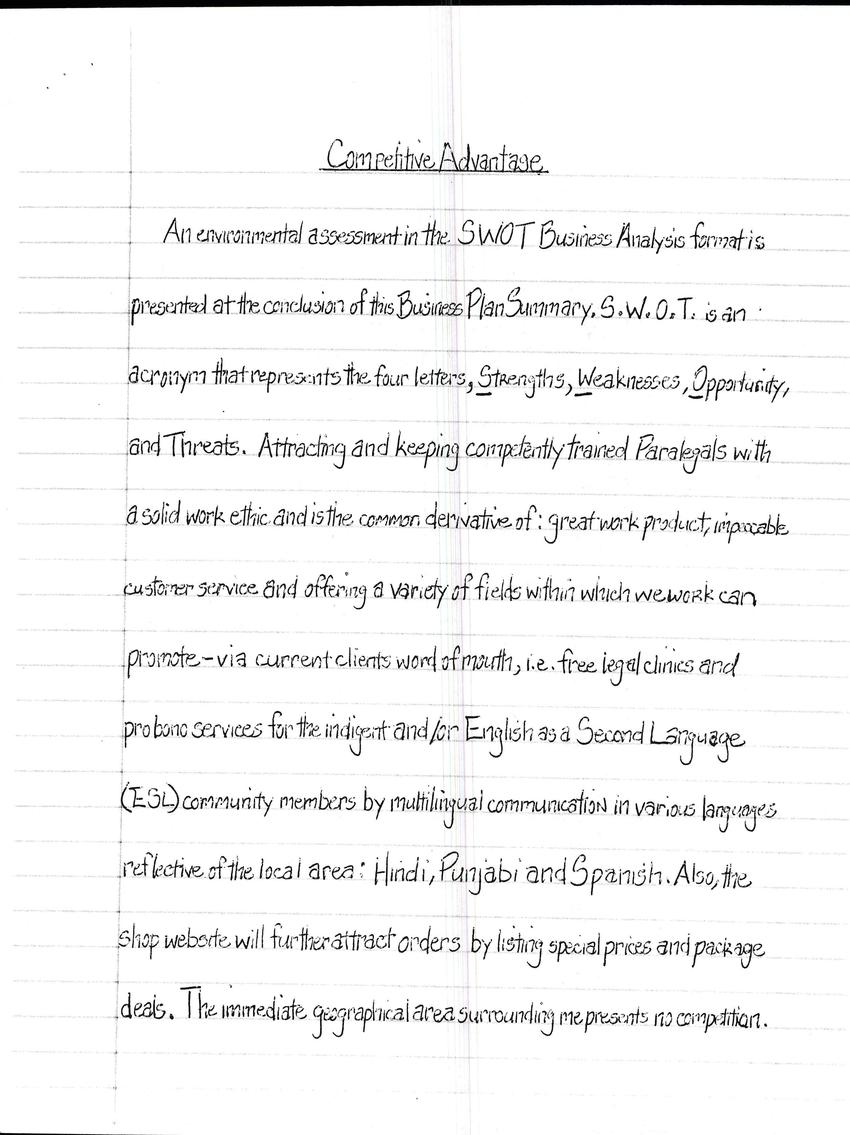 Competitive Advantage
An environmental assessment in the SWOT Business Analysis format is
presented at the conclusion of this Business Plan Summary. S.W.O.T. is an
acronym that represents the four letters, Strengths, Weaknesses, Opportunity,
and Threats. Attracting and keeping competently trained Paralegals with
a solid work ethic and is the common derivative of: great work product, impeccable
customer service and offering a variety of fields within which we work can
promote - via current clients word of mouth, i.e. free legal clinics and
pro bono services for the indigent and/or English as a Second Language
(ESL) community members by multilingual communication in various languages
reflective of the local area: Hindi, Punjabi and Spanish. Also, the
shop website will further attract orders by listing special prices and package
deals. The immediate geographical area surrounding me presents no competition.